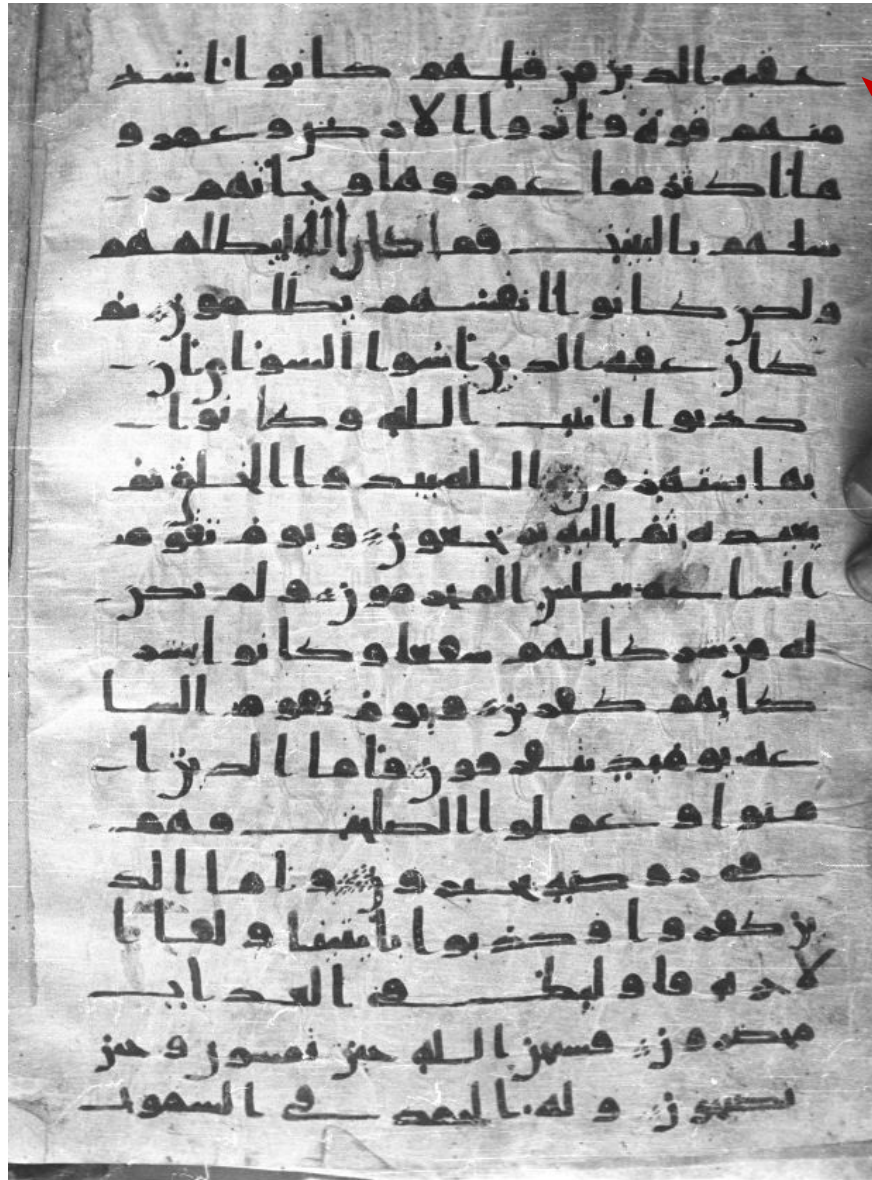 عقبه الدين من قبلهم كانوا اشد
منهم قوة واثروا الارض وعمرو
ها اكثر مما عمروها وجاتهم ر
سلهم بالبينت فما كان الله ليظلمهم
ولكن كانوا انفسهم يظلمون ثم
كان عقبه الذين اسوا السواى ان
كذبوا بايت الله وكانوا
بها يستهزون الله يبدوا الخلق ثم
يعيده ثم اليه ترجعون ويوم تقوم
الساعه يبلس المجرمون ولم يكن
له من شركايهم شفعا وكانوا بشر
كايهم كفرين ويوم تقوم السا
عه يوميذ يتفرقون فاما الذين ا
منوا وعملوا الصلحت فهم
في روضه يحبرون واما الذ
ين كفروا وكذبوا بايتنا ولقا ا
لاخره فاوليك في العذاب
محضرون فسبحن الله حين تمسون وحين
تصبحون وله الحمد في السموت